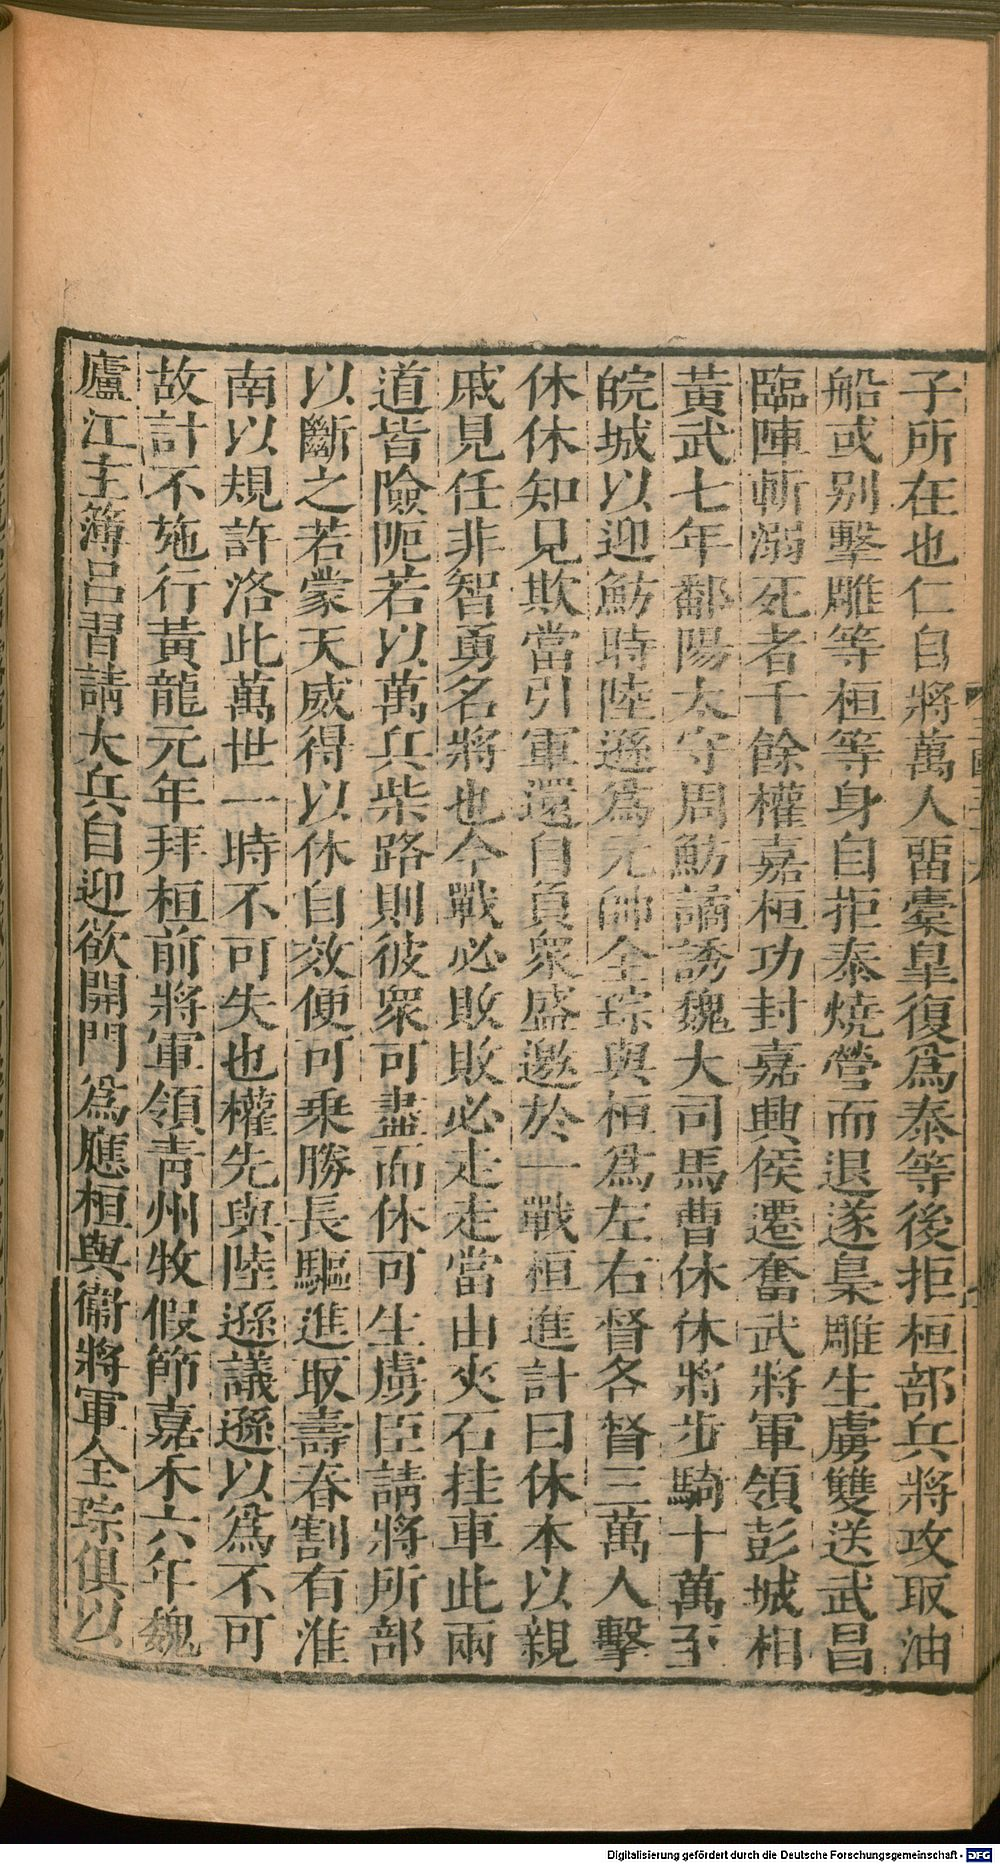 子所在也仁自將萬人畱橐臯復爲泰等後拒桓部兵將攻取油
船或別擊雕等桓等身自拒泰燒營而退遂梟雕生虜雙送武昌
臨陣斬溺死者千餘權嘉桓功封嘉興侯遷奮武將軍領彭城相
黃武七年鄱陽太守周魴譎誘魏大司馬曹休休將步騎十萬至
皖城以迎魴時陸遜爲元帥全琮與桓爲左右督各督三萬人擊
休休知見欺當引軍還自負衆盛邀於一戰桓進計曰休本以親
戚見任非智勇名將也今戰必敗敗必走走當由夾石挂車此兩
道皆險阨若以萬兵柴路則彼衆可盡而休可生虜臣請將所部
以斷之若蒙天威得以休自效便可乗勝長驅進取壽春割有淮
南以規許洛此萬世一時不可失也權先與陸遜議遜以爲不可
故計不施行黃龍元年拜桓前將軍領靑州牧假節嘉禾六年魏
廬江主簿呂習請大兵自迎欲開門爲應桓與衞將軍全琮俱以
Digitalisierung gefördert durch die Deutsche Forschungsgemeinschaft - DFG